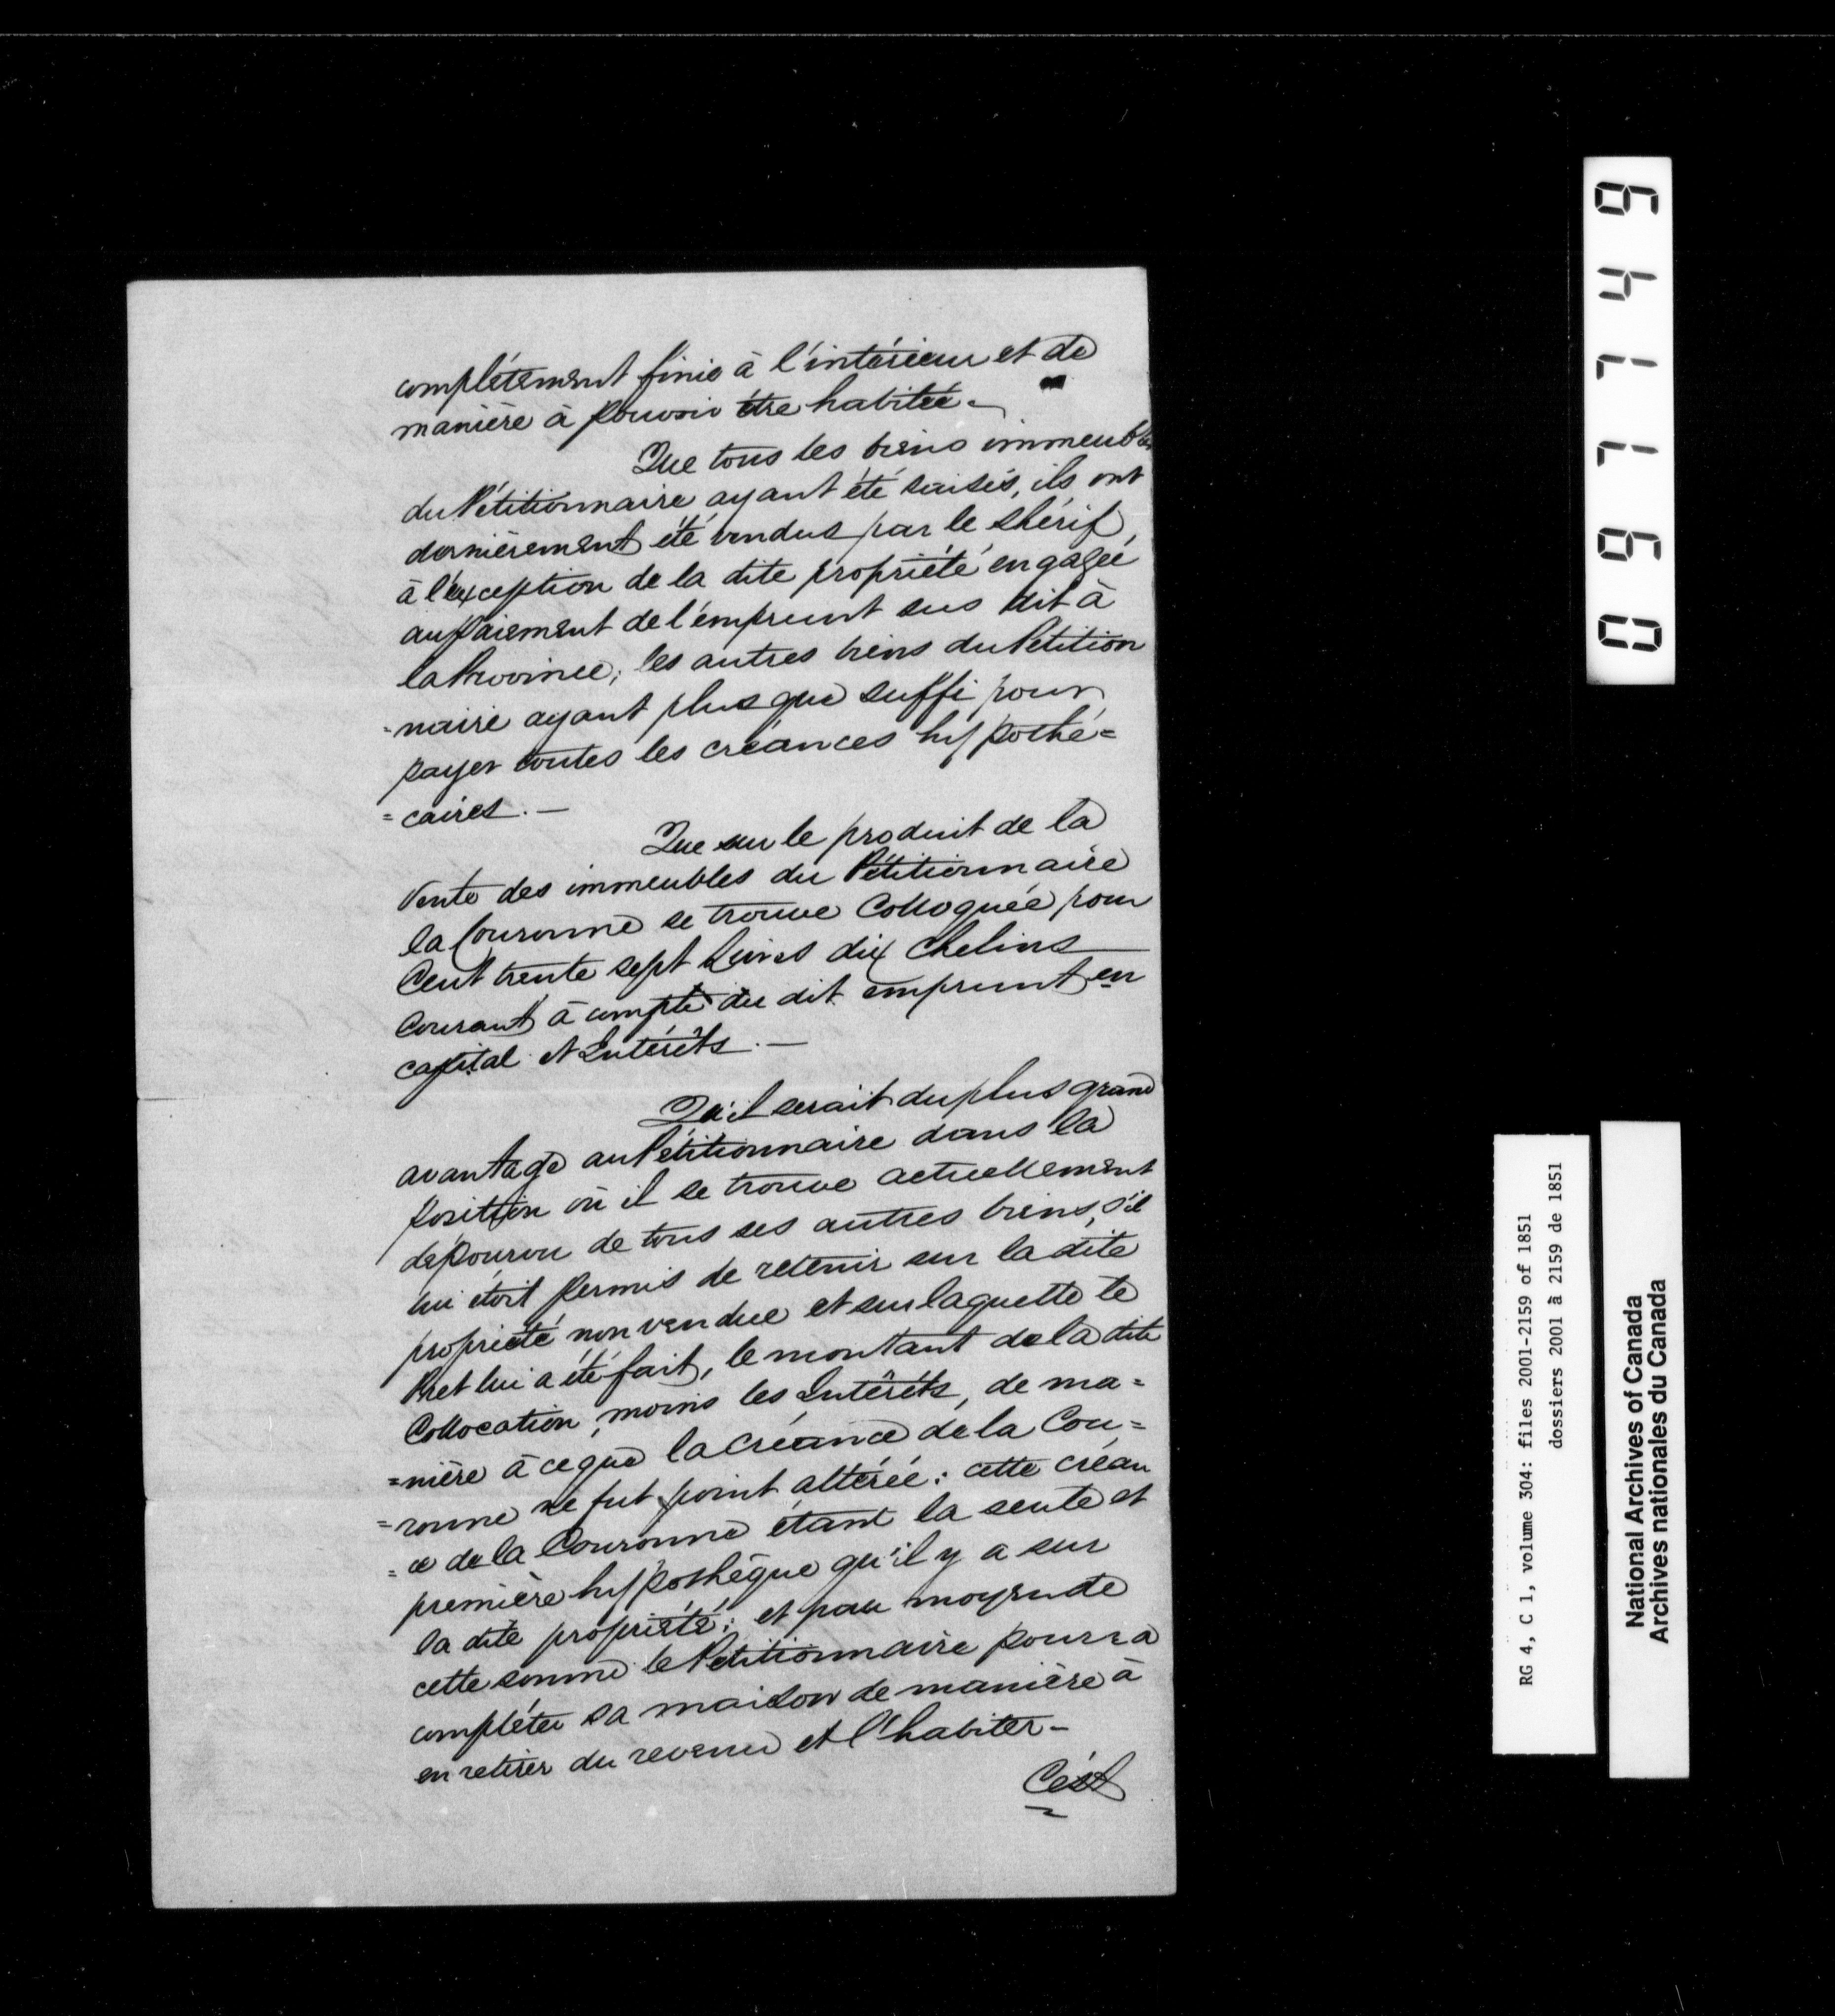 complétement finie à l'intérieur et de
manière à pouvoir être habitée.
Que tous les biens immeubles
du Pétitionnaire ayant été saisis, ils ont
dernièrement été vendus par le shérif,
à l'exception de la dite propriété engagée
au paiement de l'emprunt sus dit à
la Province; les autres biens du Pétition
-naire ayant plus que suffi pour
payer toutes les créances hypothé=
=caires. —
Que sur le produit de la
vente des immeubles du Pétitionnaire
la Couronne se trouve Colloquée pour
Cent trente sept Livres dix Chelins
Courant à compte du dit emprunt en
capital et Intérêts. —
Qu'il serait du plus grand
avantage au Pétitionnaire dans la
position où il se trouve actuellement
dépourvu de tous ses autres biens, s'il
lui étoit permis de retenir sur la dite
propriété non vendue et sur laquelle le
Pret lui a été fait, le montant de la dite
Collocation, moins les Intérêts, de ma=
=nière à ce que la Créance de la Cou=
=ronne ne fut point altérée: cette créan
=ce de la Couronne étant la seule et
première hypothèque qu'il y a sur
la dite propriété; et par moyen de
cette somme le Pétitionnaire pourra
compléter sa maison de manière à
en retirer du revenu et l'habiter—
C'est
097749
RG 4, C 1, volume 304: files 2001-2159 of 1851
dossiers 2001 à 2159 de 1851
National Archives of Canada
Archives nationales du Canada